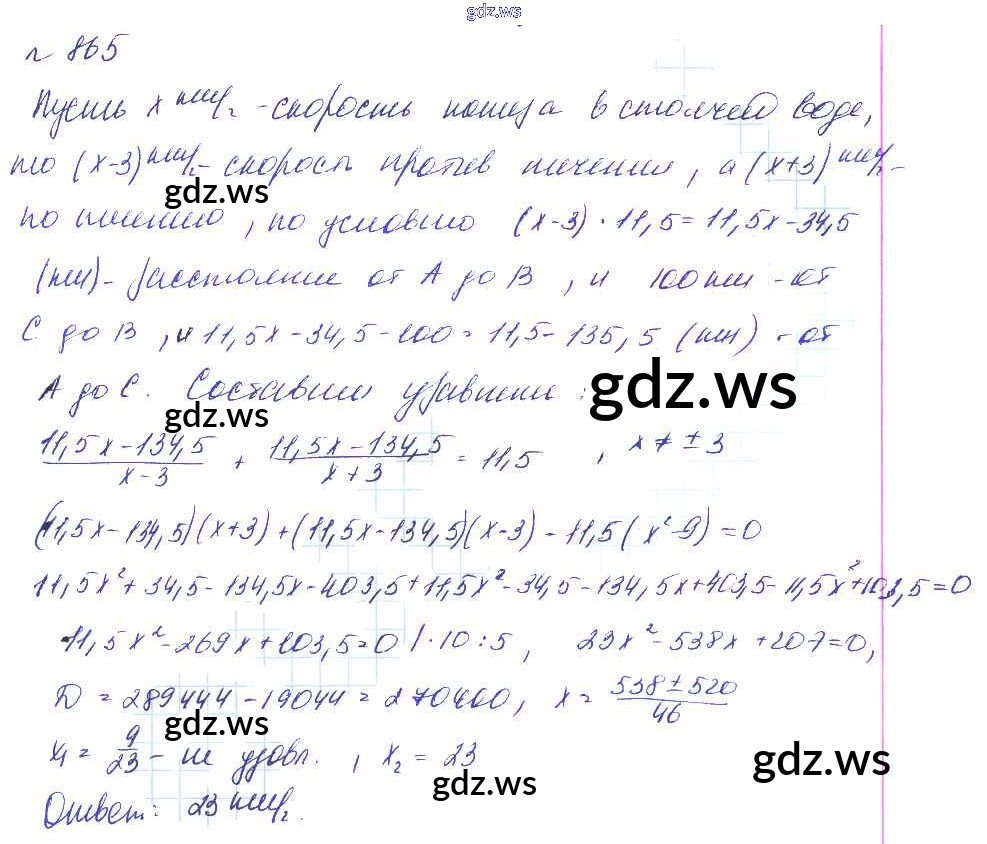 gdz.ws
№ 865
Пусть x км/ч - скорость катера в стоячей воде,
то (x-3) км/ч - скорость против течения, а (x+3) км/ч -
gdz.ws
по течению, по условию (x-3) · 11,5 = 11,5x - 34,5
(км) - расстояние от А до В, и 100 км - от
С до В, и 11,5x - 34,5 - 100 = 11,5 - 135,5 (км) - от
А до С. Составим уравнение:
gdz.ws
gdz.ws
(11,5x - 134,5)/(x - 3) + (11,5x - 134,5)/(x + 3) = 11,5, x ≠ ± 3
(11,5x - 134,5)(x+3) + (11,5x - 134,5)(x-3) - 11,5(x² - 9) = 0
11,5x² + 34,5 - 134,5x - 403,5 + 11,5x² - 34,5 - 134,5x + 403,5 - 11,5x² + 103,5 = 0
11,5x² - 269x + 103,5 = 0 | · 10 : 5, 23x² - 538x + 207 = 0,
D = 289444 - 19044 = 270400, x = (538 ± 520)/46
gdz.ws
x₁ = 9/23 - не удовл., x₂ = 23
gdz.ws
gdz.ws
Ответ: 23 км/ч.